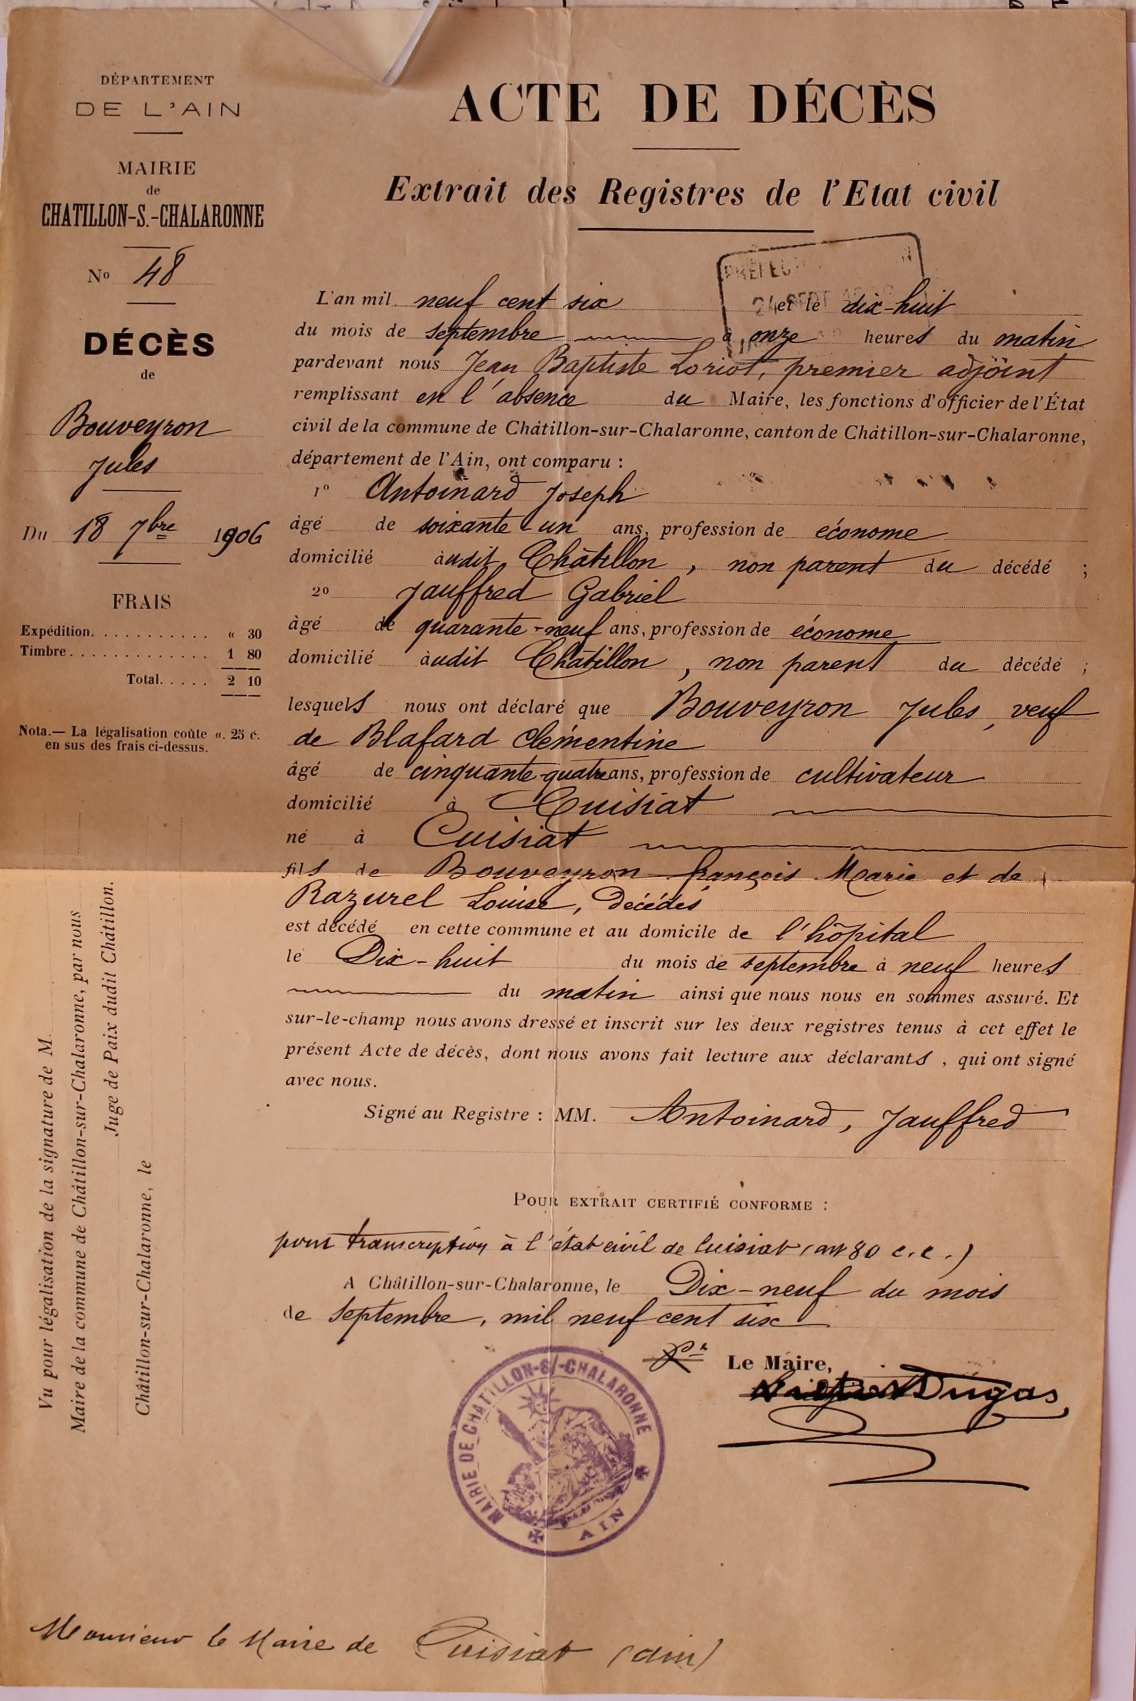 DÉPARTEMENT
DE L'AIN
MAIRIE
de
CHATILLON-S.-CHALARONNE
No 48
DÉCÈS
de
Bouveyron
Jules
Du 18 7bre 1906
FRAIS
Expédition. . . . . . . . . . . « 30
Timbre. . . . . . . . . . . . . 1 80
Total. . . . . 2 10
Nota.— La légalisation coûte «. 25 c.
en sus des frais ci-dessus.
Vu pour légalisation de la signature de M.
Maire de la commune de Châtillon-sur-Chalaronne, par nous
Juge de Paix dudit Châtillon.
Châtillon-sur-Chalaronne, le
ACTE DE DÉCÈS
Extrait des Registres de l'Etat civil
PRÉFEC
L'an mil neuf cent six et le dix-huit
du mois de septembre à onze heures du matin
pardevant nous Jean Baptiste Loriot, premier adjoint
remplissant en l'absence du Maire, les fonctions d'officier de l'État
civil de la commune de Châtillon-sur-Chalaronne, canton de Châtillon-sur-Chalaronne,
département de l'Ain, ont comparu :
1o Antoinard Joseph
âgé de soixante-un ans, profession de économe
domicilié audit Châtillon, non parent du décédé ;
2o Jauffred Gabriel
âgé de quarante-neuf ans, profession de économe
domicilié audit Châtillon, non parent du décédé ;
lesquels nous ont déclaré que Bouveyron Jules, veuf
de Blafard Clémentine
âgé de cinquante-quatre ans, profession de cultivateur
domicilié à Cuisiat
né à Cuisiat
fils de Bouveyron françois Marie et de
Razurel Louise, Décédés
est décédé en cette commune et au domicile de l'hôpital
le Dix-huit du mois de septembre à neuf heures
du matin ainsi que nous nous en sommes assuré. Et
sur-le-champ nous avons dressé et inscrit sur les deux registres tenus à cet effet le
présent Acte de décès, dont nous avons fait lecture aux déclarants, qui ont signé
avec nous.
Signé au Registre : MM. Antoinard, Jauffred
POUR EXTRAIT CERTIFIÉ CONFORME :
pour transcription à l'état civil de Cuisiat (art 80 c. c.)
A Châtillon-sur-Chalaronne, le Dix-neuf du mois
de septembre, mil neuf cent six
Le Maire,
Dugas
MAIRIE DE CHATILLON-S/-CHALARONNE
AIN
Monsieur le Maire de Cuisiat (Ain)